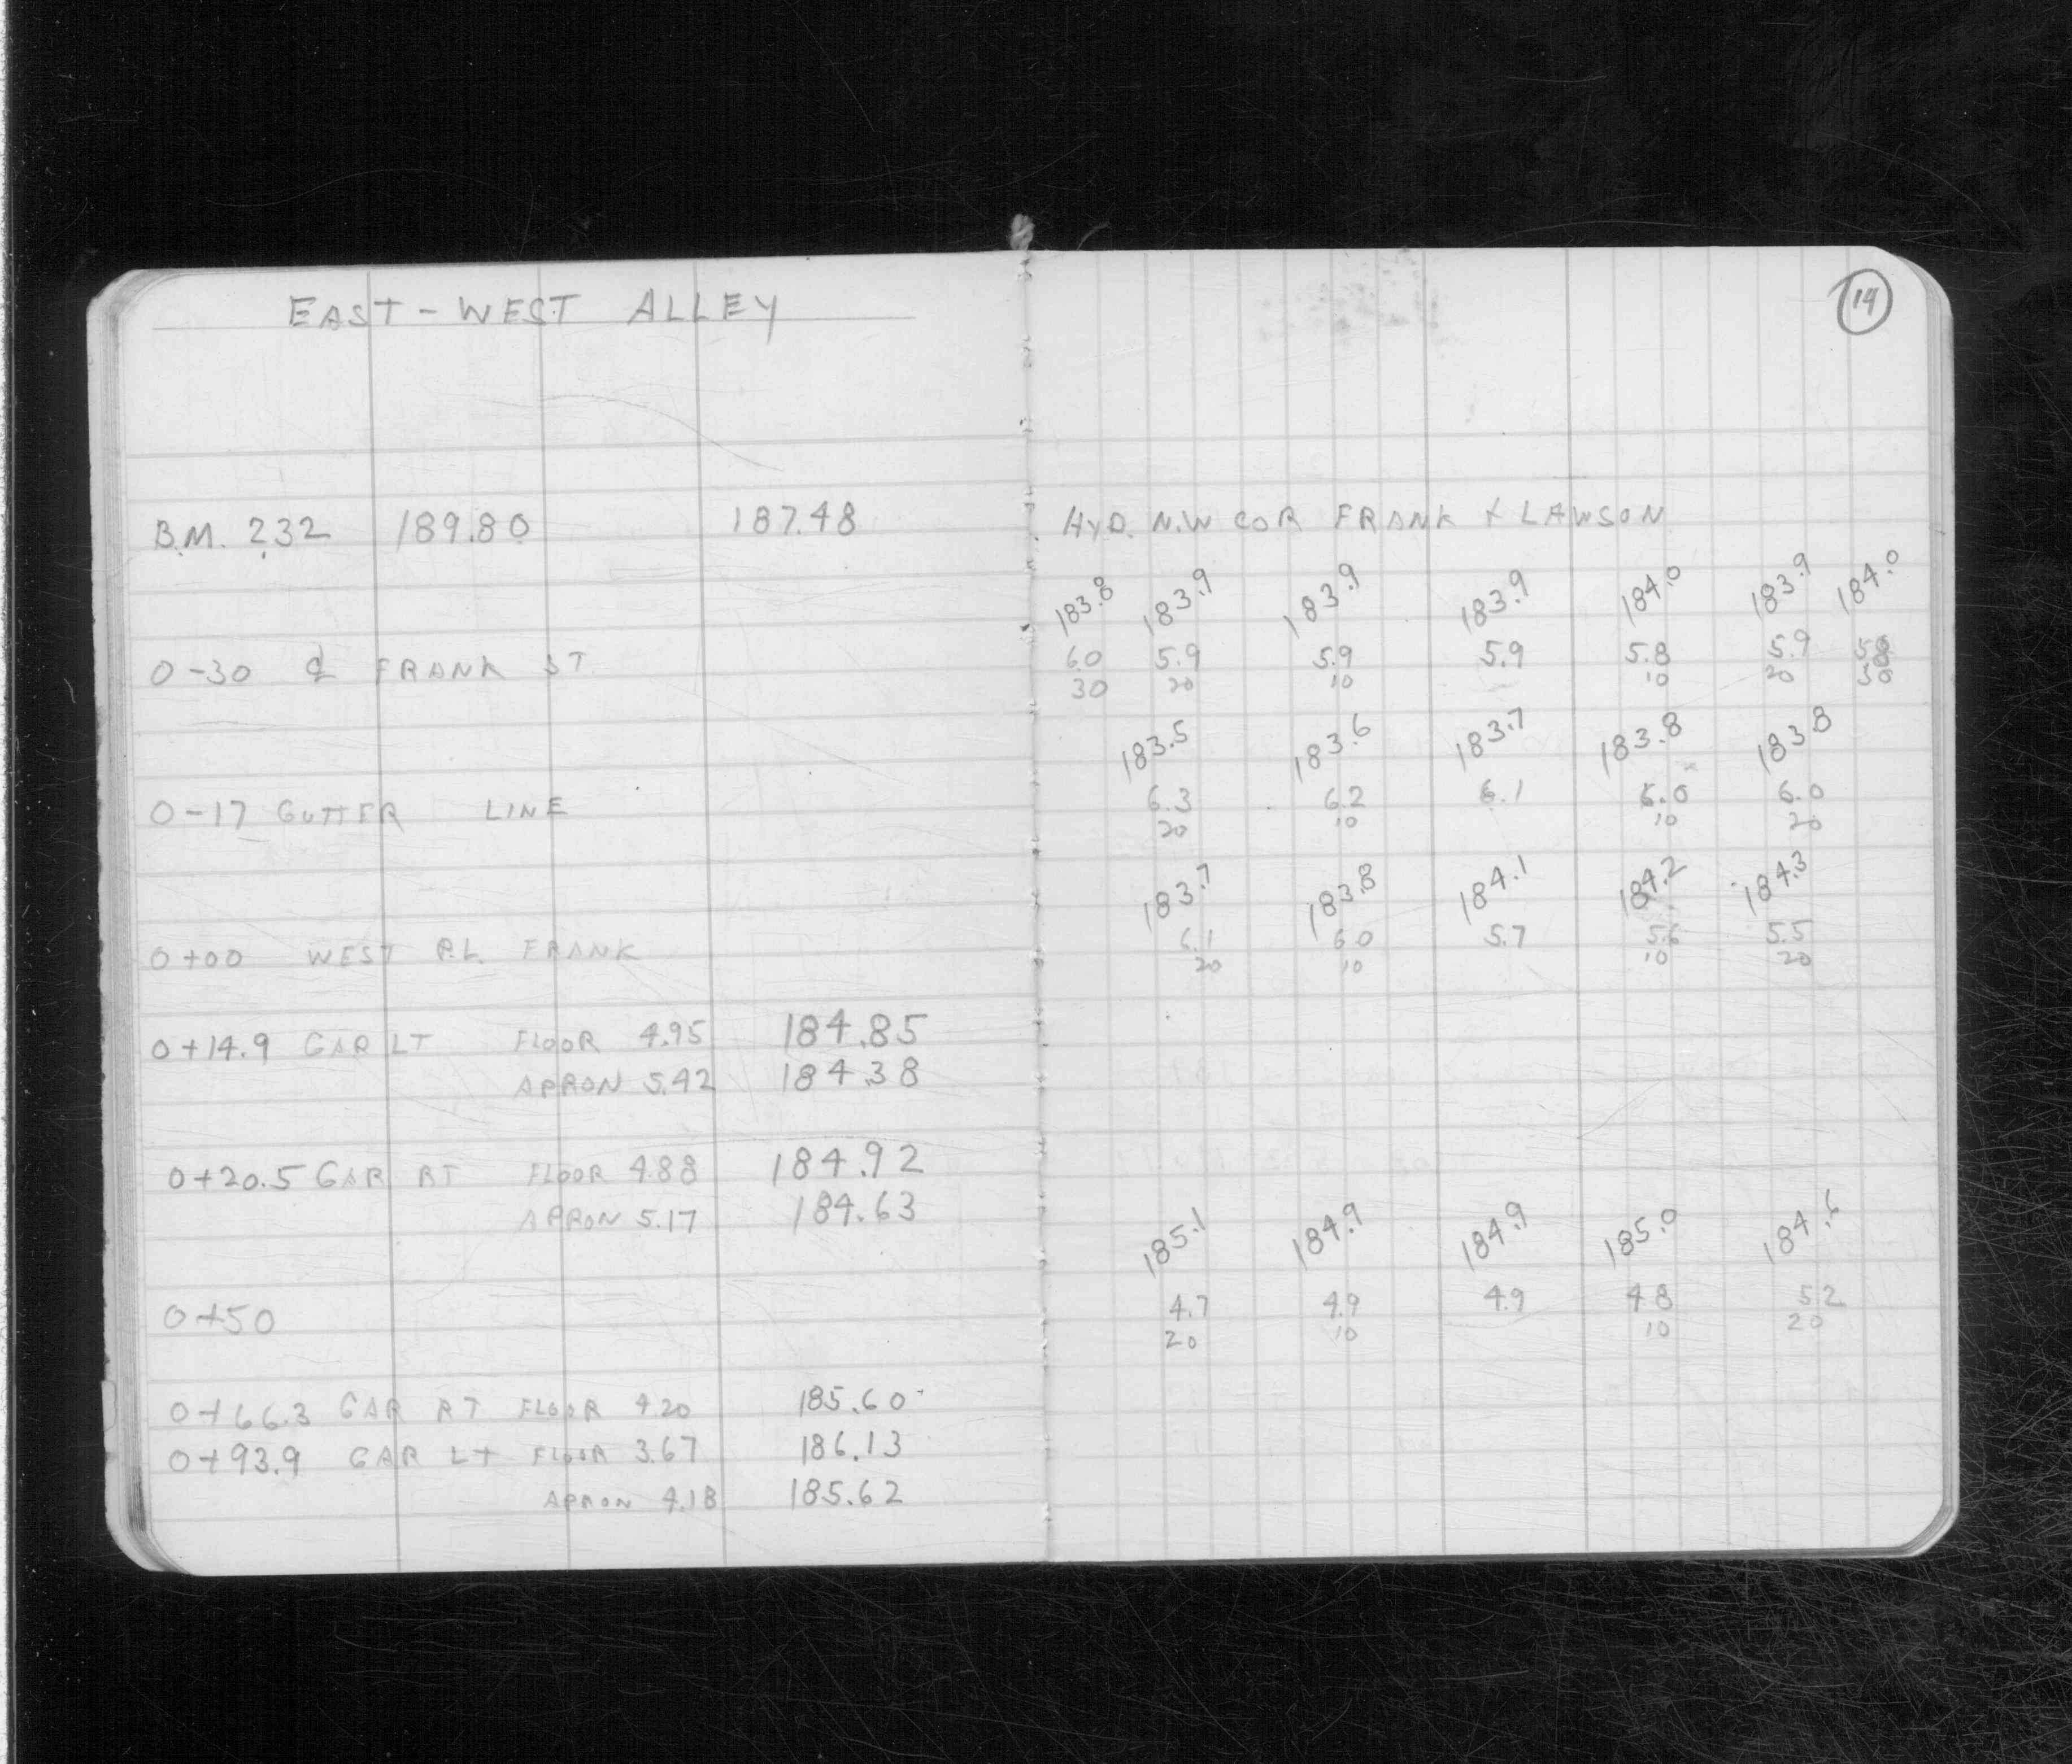 14
EAST-WEST ALLEY
B.M. 2.32 189.80 187.48 HYD. N.W COR FRANK & LAWSON
183.8 183.9 183.9 183.9 184.0 183.9 184.0
0-30 ℄ FRANK ST. 6.0 5.9 5.9 5.9 5.8 5.9 5.8
30 20 10 10 20 30
183.5 183.6 183.7 183.8 183.8
0-17 GUTTER LINE 6.3 6.2 6.1 6.0 6.0
20 10 10 20
183.7 183.8 184.1 184.2 184.3
0+00 WEST P.L. FRANK 6.1 6.0 5.7 5.6 5.5
20 10 10 20
0+14.9 GAR LT FLOOR 4.95 184.85
APRON 5.42 184.38
0+20.5 GAR RT FLOOR 4.88 184.92
APRON 5.17 184.63
185.1 184.9 184.9 185.0 184.6
0+50 4.7 4.9 4.9 4.8 5.2
20 10 10 20
0+66.3 GAR RT FLOOR 4.20 185.60
0+93.9 GAR LT FLOOR 3.67 186.13
APRON 4.18 185.62